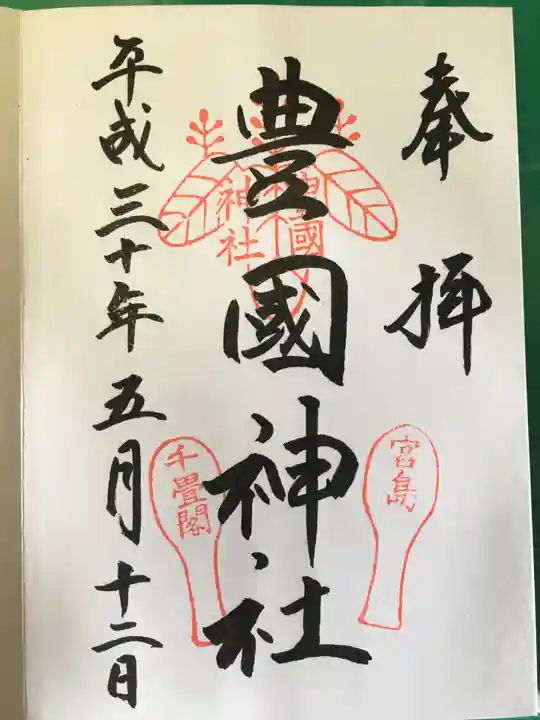 奉拝
豊國神社
豊國
神社
宮島
千畳閣
平成三十年五月十二日